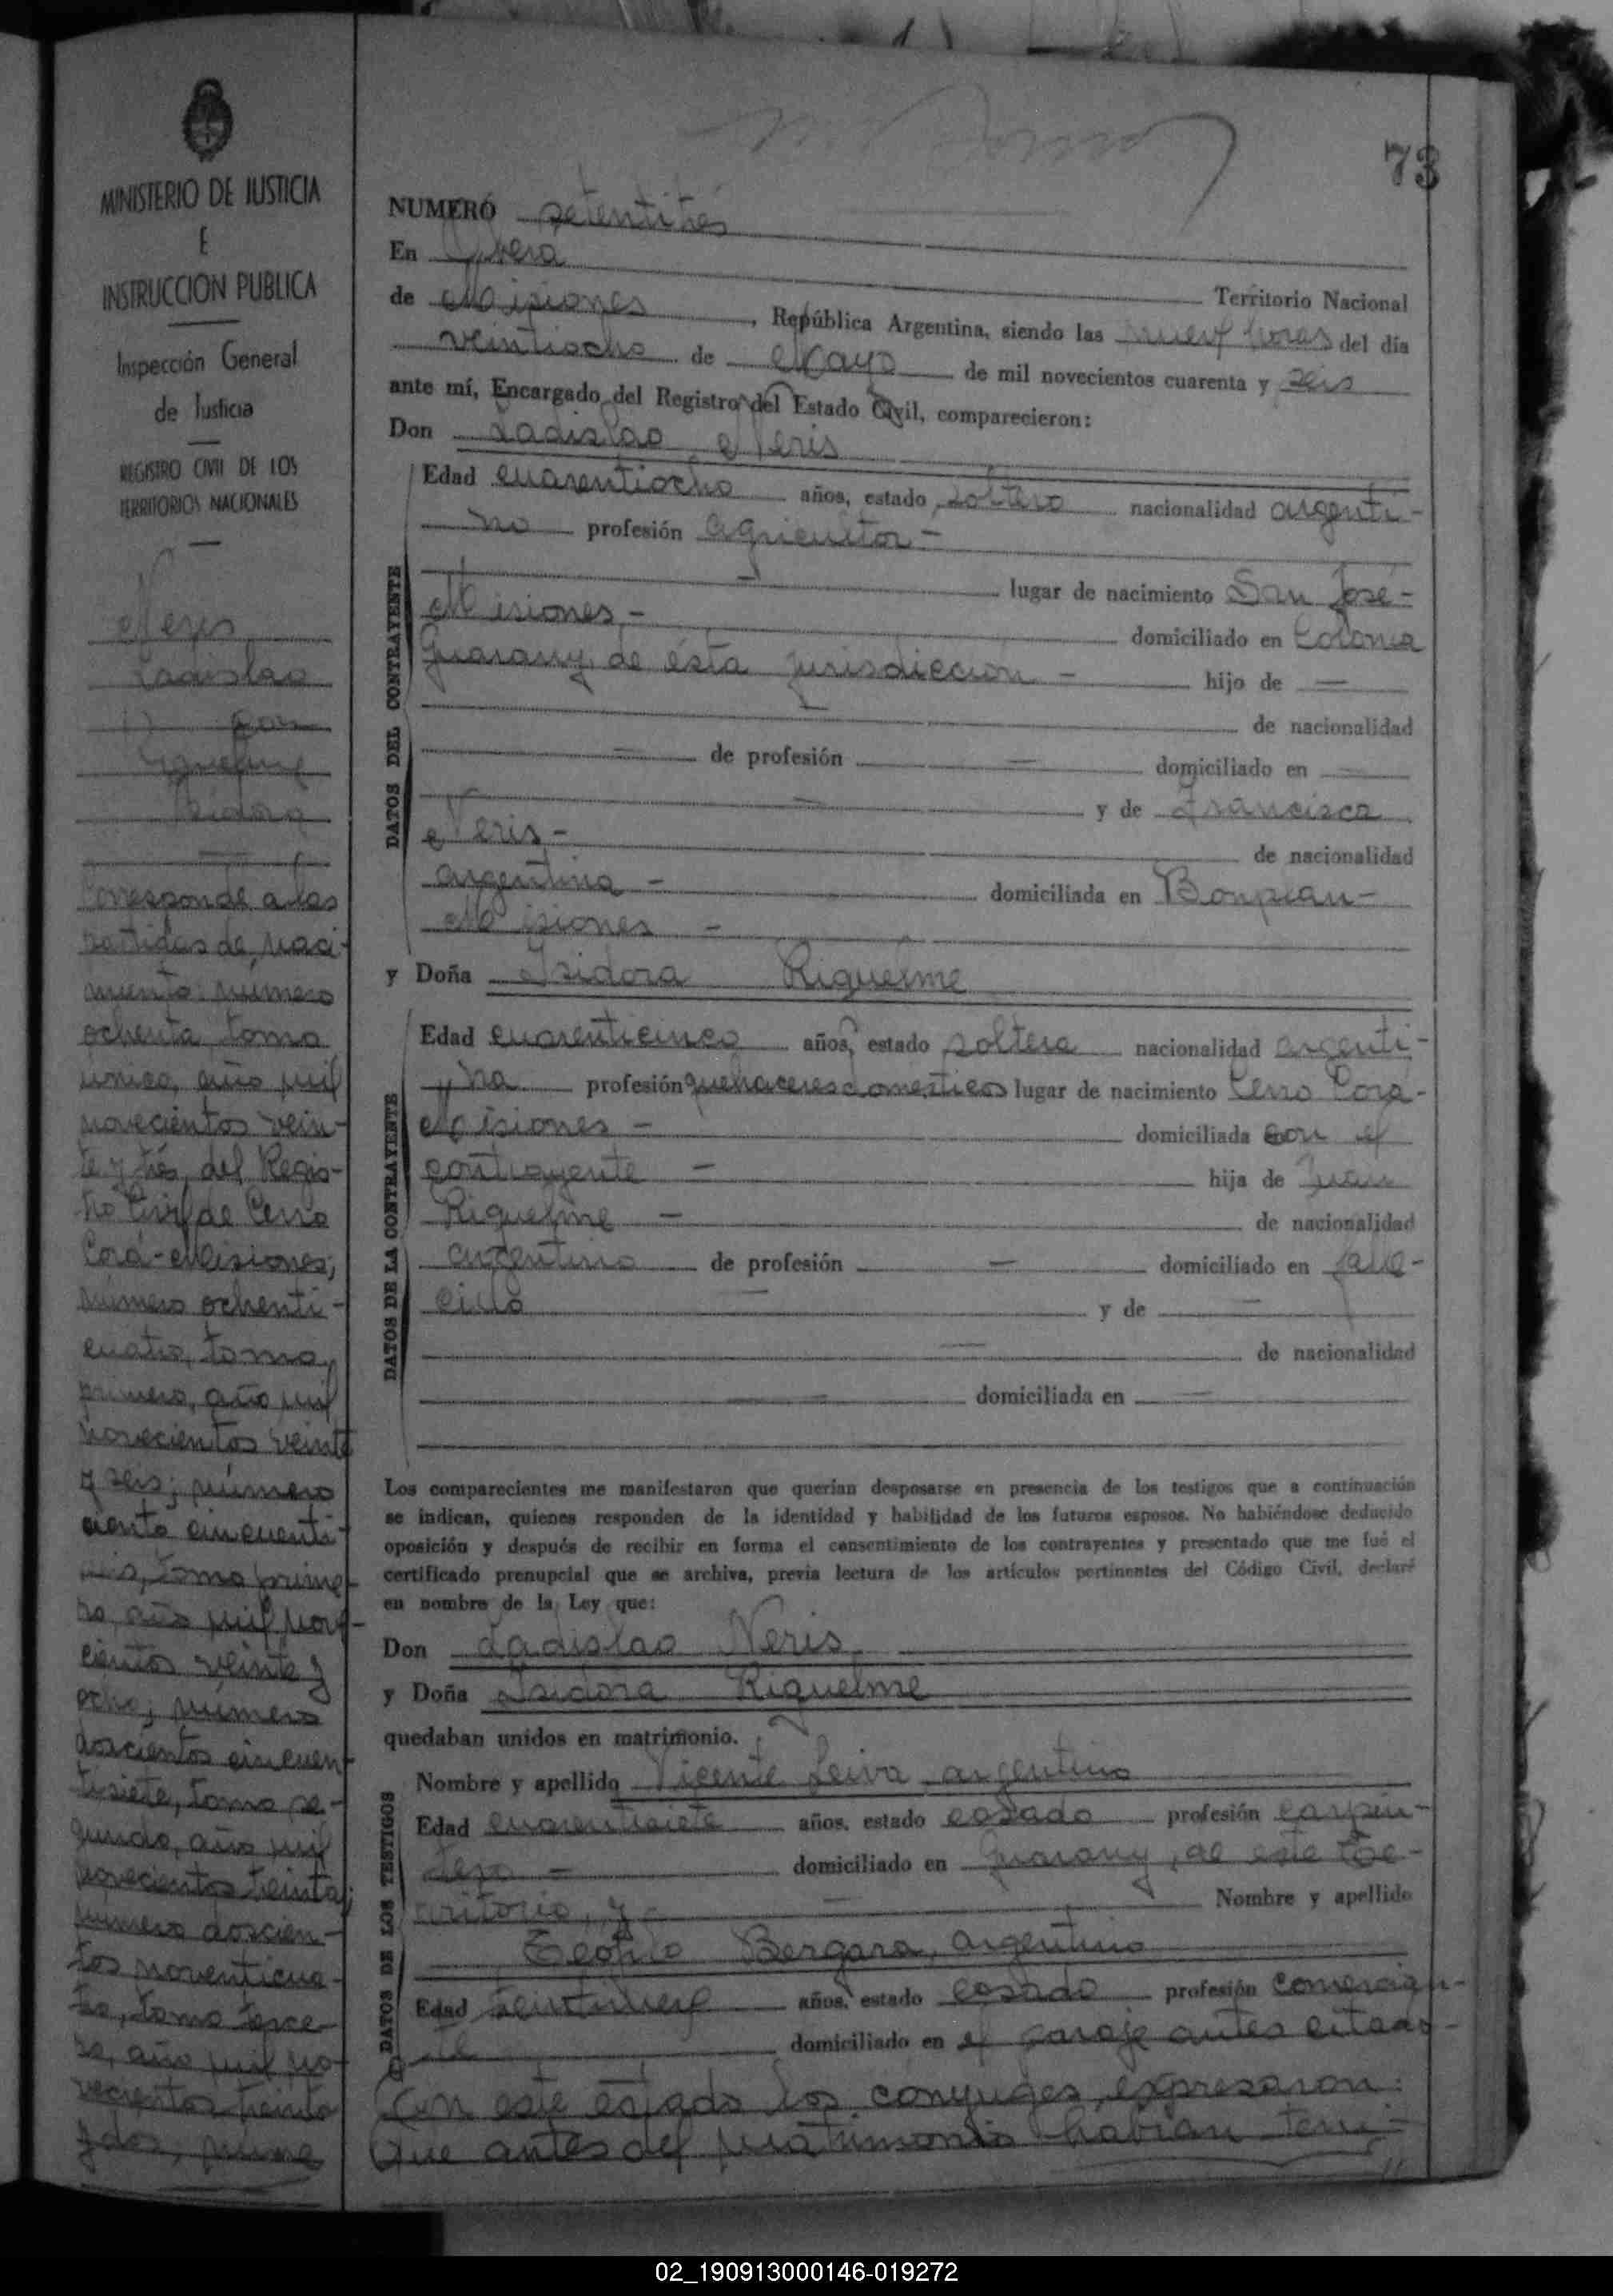 73
MINISTERIO DE JUSTICIA
E
INSTRUCCION PUBLICA
Inspección General
de Justicia
REGISTRO CIVIL DE LOS
TERRITORIOS NACIONALES
Neris
Ladislao
con
Riquelme
Isidora
Corresponde a las
partidas de naci-
miento: número
ochenta, tomo
único, año mil
novecientos vein-
te y trés, del Regis-
tro Civil de Cerro
Corá-Misiones;
número ochenti-
cuatro, tomo
primero, año mil
novecientos veinte
y seis; número
ciento cincuenti-
tomo prime-
ro, año mil nove-
cientos veinte y
ocho; número
doscientos cincuen-
tisiete, tomo se-
gundo, año mil
novecientos treinta;
número doscien-
tos noventicua-
tro, tomo terce-
ro, año mil no-
vecientos treinta
y dos,
NUMERO setentitrés
En Oberá
Territorio Nacional
de Misiones, República Argentina, siendo las nueve horas del día
veintiocho de Mayo de mil novecientos cuarenta y seis
ante mí, Encargado del Registro del Estado Civil, comparecieron:
Don Ladislao Neris
DATOS DEL CONTRAYENTE
Edad cuarentiocho años, estado soltero nacionalidad argenti-
no profesión agricultor -
lugar de nacimiento San José -
Misiones - domiciliado en Colonia
Guarany, de ésta jurisdiccion - hijo de —
de nacionalidad
— de profesión — domiciliado en —
— y de Francisca
Neris - de nacionalidad
argentina - domiciliada en Bonplan -
Misiones -
y Doña Isidora Riquelme
DATOS DE LA CONTRAYENTE
Edad cuarenticinco años, estado soltera nacionalidad argenti-
na profesión quehaceres domésticos lugar de nacimiento Cerro Corá -
Misiones - domiciliada con el
contrayente - hija de Juan
Riquelme - de nacionalidad
argentino de profesión — domiciliado en falle-
cido — y de —
— de nacionalidad
— domiciliada en —
Los comparecientes me manifestaron que querían desposarse en presencia de los testigos que a continuación
se indican, quienes responden de la identidad y habilidad de los futuros esposos. No habiéndose deducido
oposición y después de recibir en forma el consentimiento de los contrayentes y presentado que me fué el
certificado prenupcial que se archiva, previa lectura de los artículos pertinentes del Código Civil, declaré
en nombre de la Ley que:
Don Ladislao Neris
y Doña Isidora Riquelme
quedaban unidos en matrimonio.
DATOS DE LOS TESTIGOS
Nombre y apellido Vicente Leiva argentino
Edad cuarentisiete años, estado casado profesión carpin-
tero - domiciliado en Guarany, de este Te-
rritorio, y — Nombre y apellido
Teofilo Bergara, argentino
Edad treintinueve años, estado casado profesión comercian-
te domiciliado en el paraje antes citado -
En este estado los conyuges, expresaron:
Que antes del matrimonio habian teni-
02_190913000146-019272